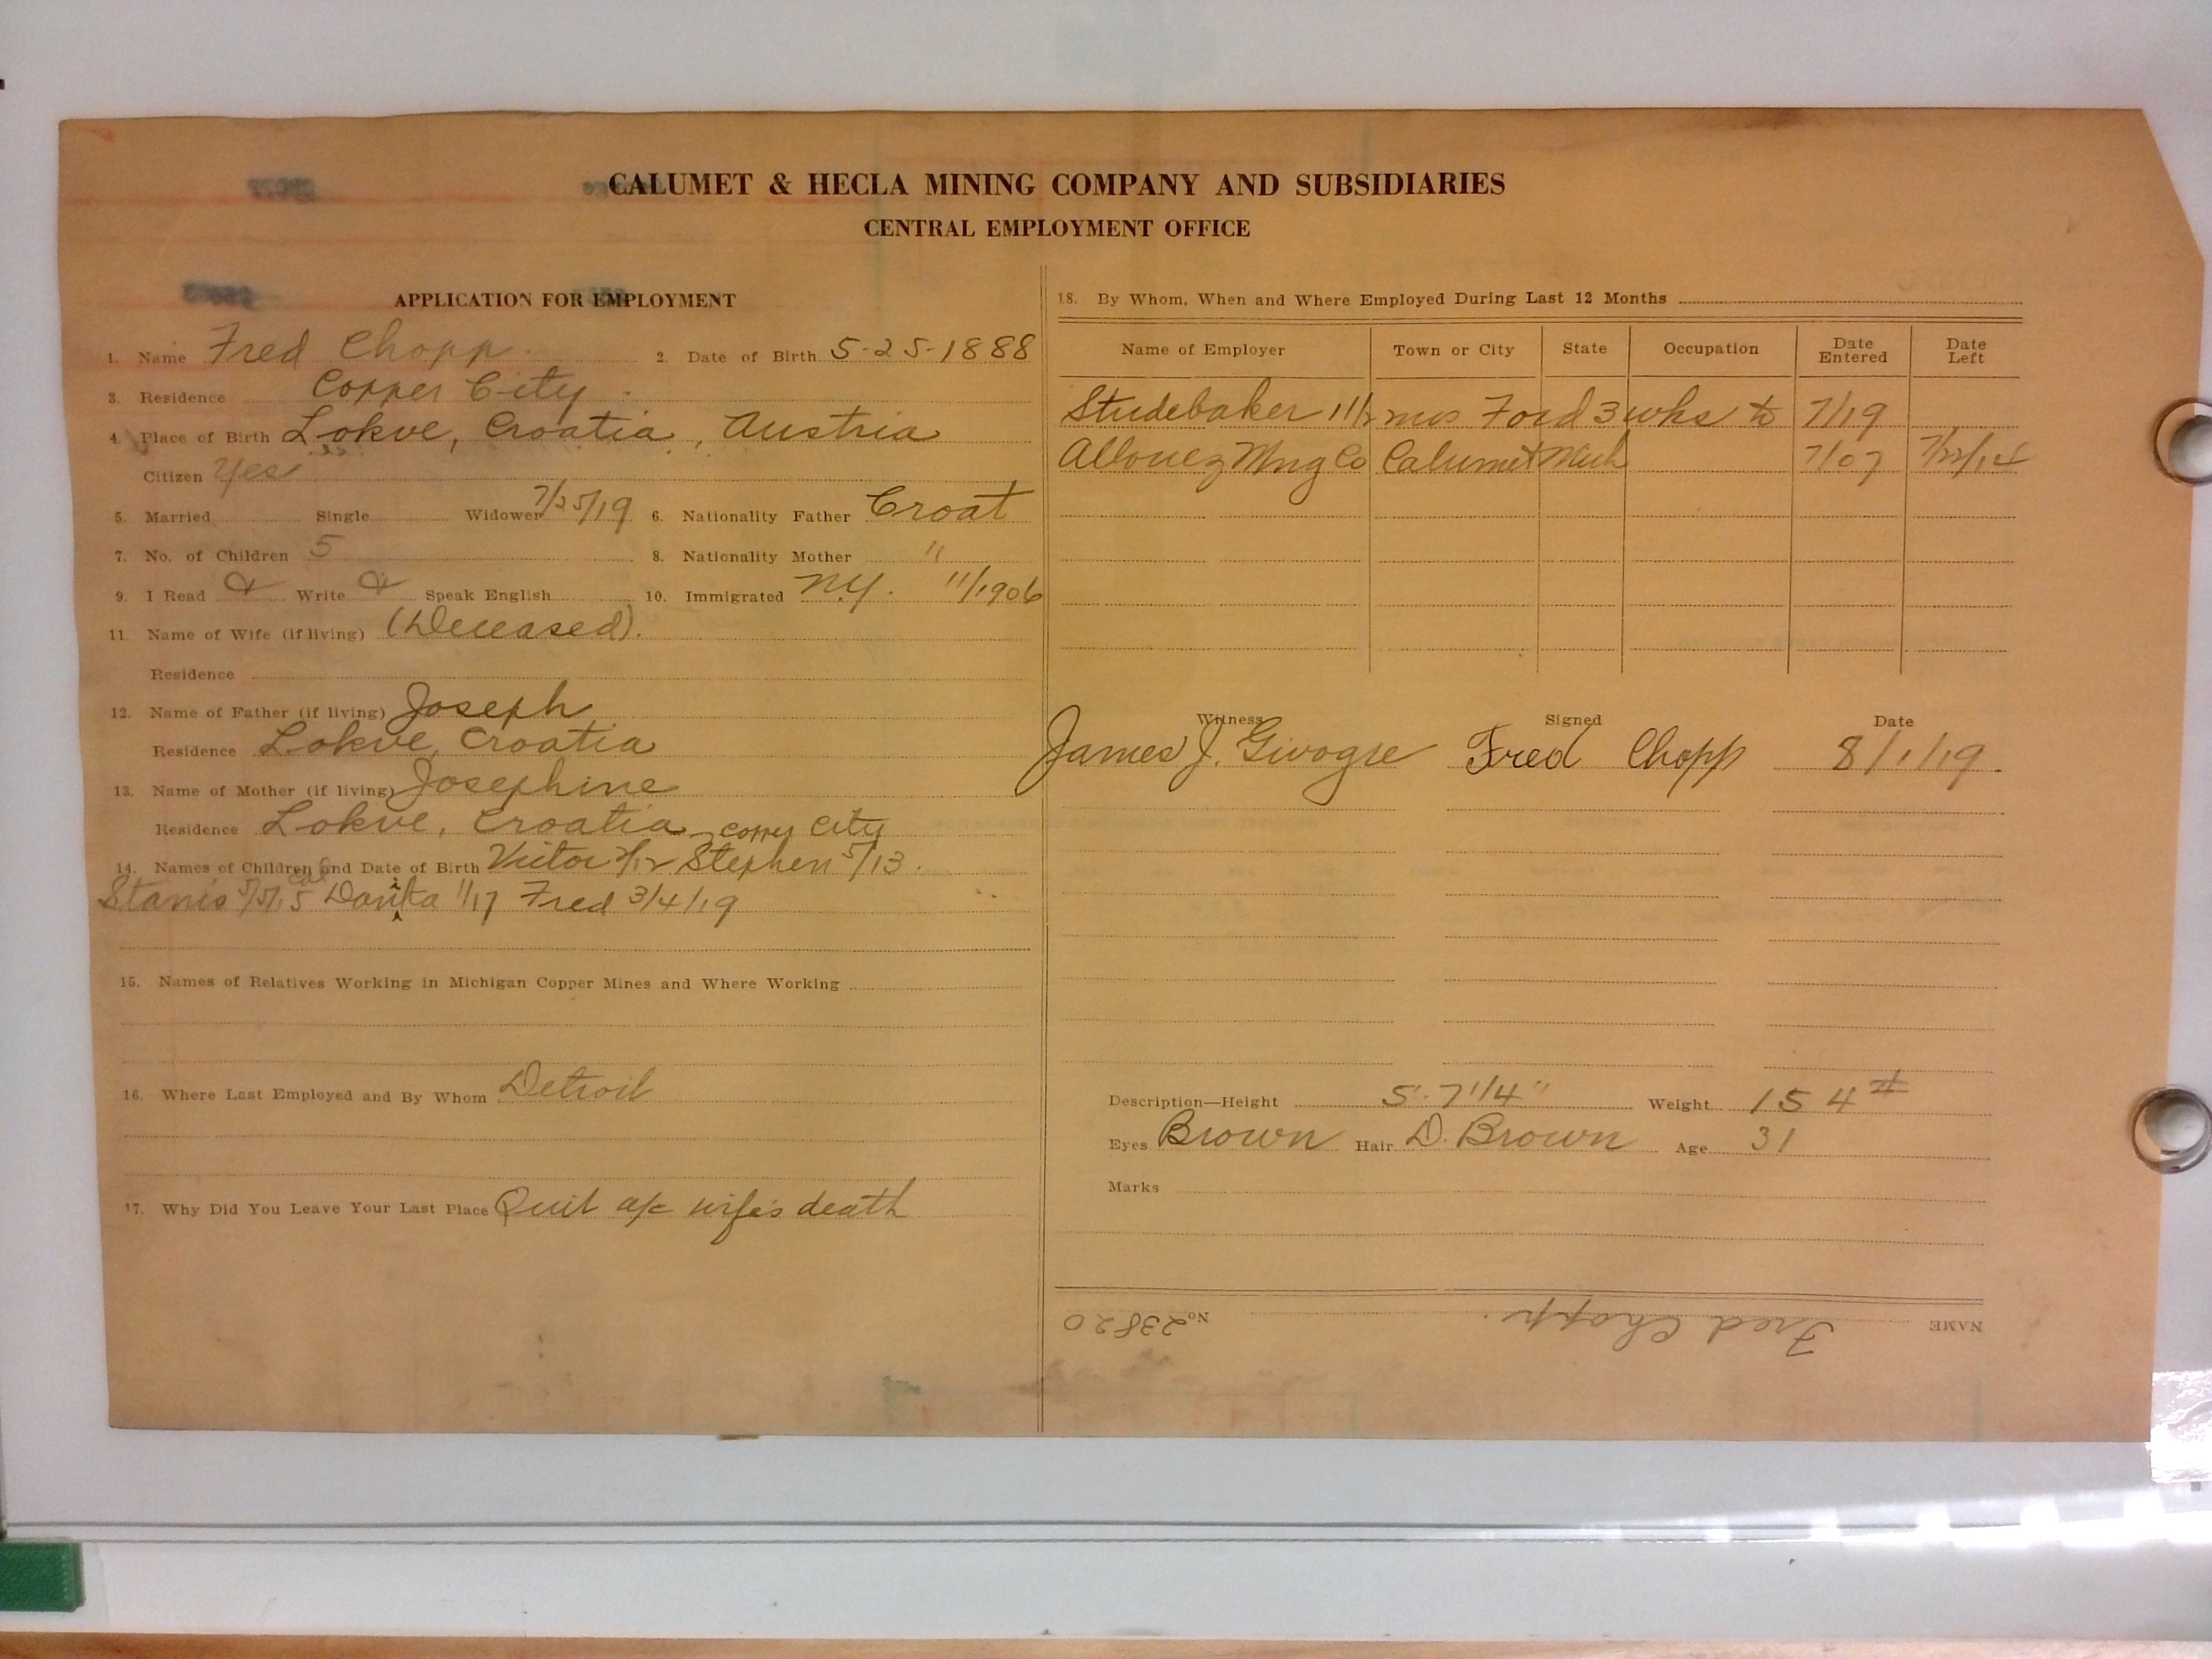 CALUMET & HECLA MINING COMPANY AND SUBSIDIARIES
CENTRAL EMPLOYMENT OFFICE
APPLICATION FOR EMPLOYMENT
1. Name Fred Chopp. 2. Date of Birth 5-25-1888
3. Residence Copper City
4. Place of Birth Lokve, Croatia, Austria
Citizen Yes
5. Married Single Widower 7/25/19 6. Nationality Father Croat
7. No. of Children 5 8. Nationality Mother "
9. I Read & Write & Speak English 10. Immigrated N.Y. 11/1906
11. Name of Wife (if living) (Deceased).
Residence
12. Name of Father (if living) Joseph
Residence Lokve, Croatia
13. Name of Mother (if living) Josephine
Residence Lokve, Croatia Copper City
14. Names of Children and Date of Birth Victor 2/12 Stephen 5/13.
Stanis 5/5/15 Cal Danika 1/17 Fred 3/4/19
15. Names of Relatives Working in Michigan Copper Mines and Where Working
16. Where Last Employed and By Whom Detroit
17. Why Did You Leave Your Last Place Quit a/c wife's death
18. By Whom, When and Where Employed During Last 12 Months
Name of Employer Town or City State Occupation Date Entered Date Left
Studebaker 1 1/2 mos Ford 3 wks to 7/19
Allouez Mng Co Calumet Mich 7/07 7/22/14
Witness Signed Date
James J. Fred Chopp 8/1/19.
Description—Height 5' 7 1/4" Weight 154 #
Eyes Brown Hair D. Brown Age 31
Marks
NAME Fred Chopp. No. 23820